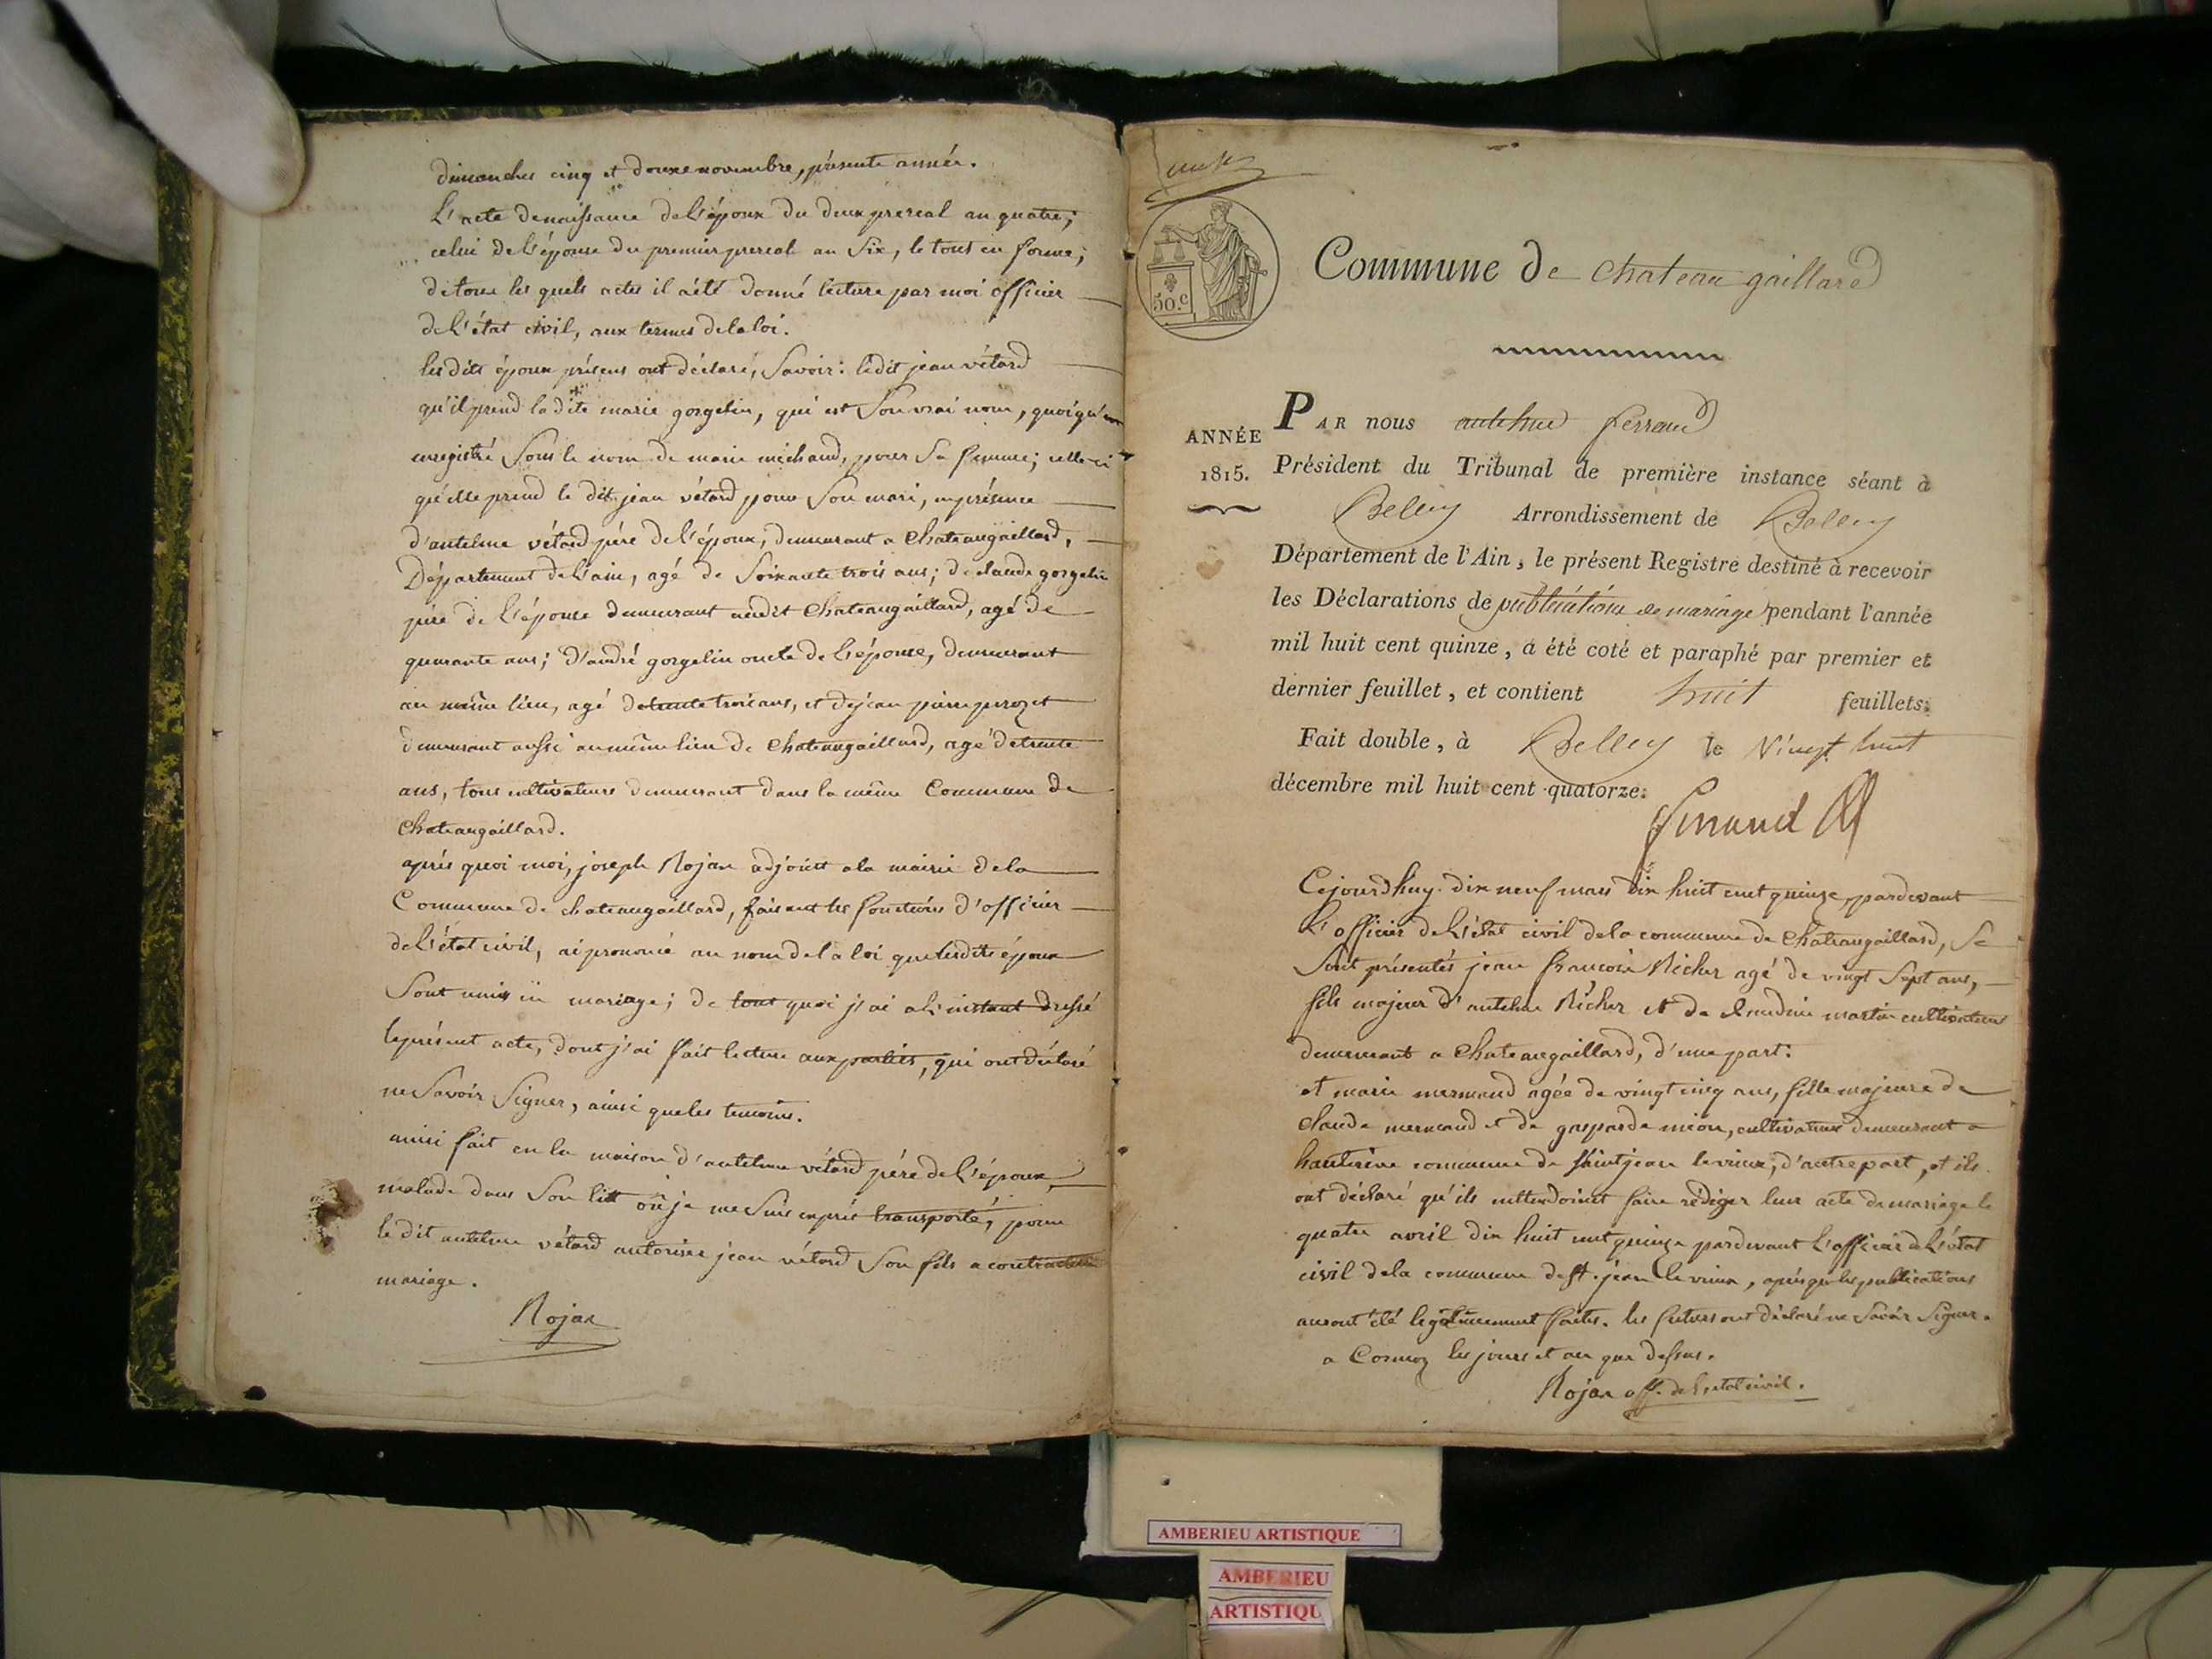 dimanches cinq et douze novembre, présente année.
L'acte de naissance de l'époux du deux prereal an quatre;
celui de l'épouse du premier prereal an Six, le tout en forme;
de tous les quels actes il a été donné lecture par moi officier
de l'état civil, aux termes de la loi.
les dits époux présens ont déclaré, Savoir: ledit jean vétard
qu'il prend la dite marie gorgelin, qui est Son vrai nom, quoiqu'en
enregistré Sous le nom de marie michaud, pour Sa femme; celle-ci
qu'elle prend le dit jean vétard pour Son mari, en présence
d'antelme vétard père de l'époux, demeurant a Chateaugaillard,
Département de l'ain, agé de Soixante trois ans; de claude gorgelin
père de l'épouse demeurant audit Chateaugaillard, agé de
quarante ans; d'andré gorgelin oncle de l'épouse, demeurant
au même lieu, agé de trente trois ans, et de jean pierre perozet
demeurant aussi au même lieu de Chateaugaillard, agé de trente
ans, tous cultivateurs demeurant dans la même Commune de
Chateaugaillard.
après quoi moi, joseph Rojan adjoint a la mairie de la
Commune de chateaugaillard, faisant les fonctions d'officier
de l'état civil, ai prononcé au nom de la loi que lesdits époux
Sont unis en mariage; de tout quoi j'ai a l'instant dressé
le présent acte, dont j'ai fait lecture aux parties, qui ont déclaré
ne Savoir Signer, ainsi que les temoins.
ainsi fait en la maison d'antelme vétard père de l'époux,
malade dans Son litt où je me Suis exprès transporté, pour
le dit antelme vétard autoriser jean vétard Son fils a contracter
mariage.
Rojan
50.c
Commune de chateau gaillard
ANNÉE
1815.
PAR nous anthelme ferrand
Président du Tribunal de première instance séant à
Belley Arrondissement de Belley
Département de l'Ain, le présent Registre destiné à recevoir
les Déclarations de publications de mariage pendant l'année
mil huit cent quinze, a été coté et paraphé par premier et
dernier feuillet, et contient huit feuillets.
Fait double, à Belley le vingt huit
décembre mil huit cent quatorze.
Cejourdhuy dix neuf mars dix huit cent quinze, pardevant
L'officier de l'état civil de la commune de Chateaugaillard, Se
Sont présentés jean francois Richer agé de vingt Sept ans,
fils majeur d'antelme Richer et de claudine martin cultivateurs
demeurant a Chateaugaillard, d'une part:
et marie mermand agée de vingt cinq ans, fille majeure de
claude mermand et de gasparde mion, cultivateurs demeurant a
hauterive commune de Saint jean le vieux, d'autre part, et ils
ont déclaré qu'ils entendoient faire rédiger leur acte de mariage le
quatre avril dix huit cent quinze pardevant l'officier de l'état
civil de la commune de St. jean le vieux, après que les publications
auront été légitimement faites. les futurs ont déclaré ne Savoir Signer.
a Cormoz les jours et an que dessus.
Rojan off. de l'etat civil.
AMBERIEU ARTISTIQUE
AMBERIEU
ARTISTIQU